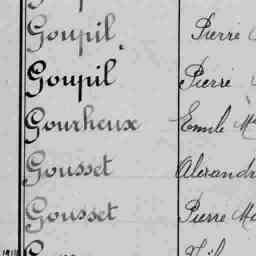 Goupil Pierre
Goupil Pierre
Gourheux Emile
Gousset Alexandr
Gousset Pierre